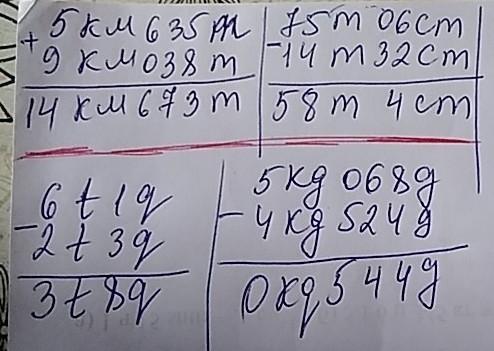 + 5 км 635 m
9 км 038 m
14 км 673 m
75 m 06 cm
- 14 m 32 cm
58 m 4 cm
- 6 t 1 q
2 t 3 q
3 t 8 q
5 kg 068 g
- 4 kg 524 g
0 kg 544 g